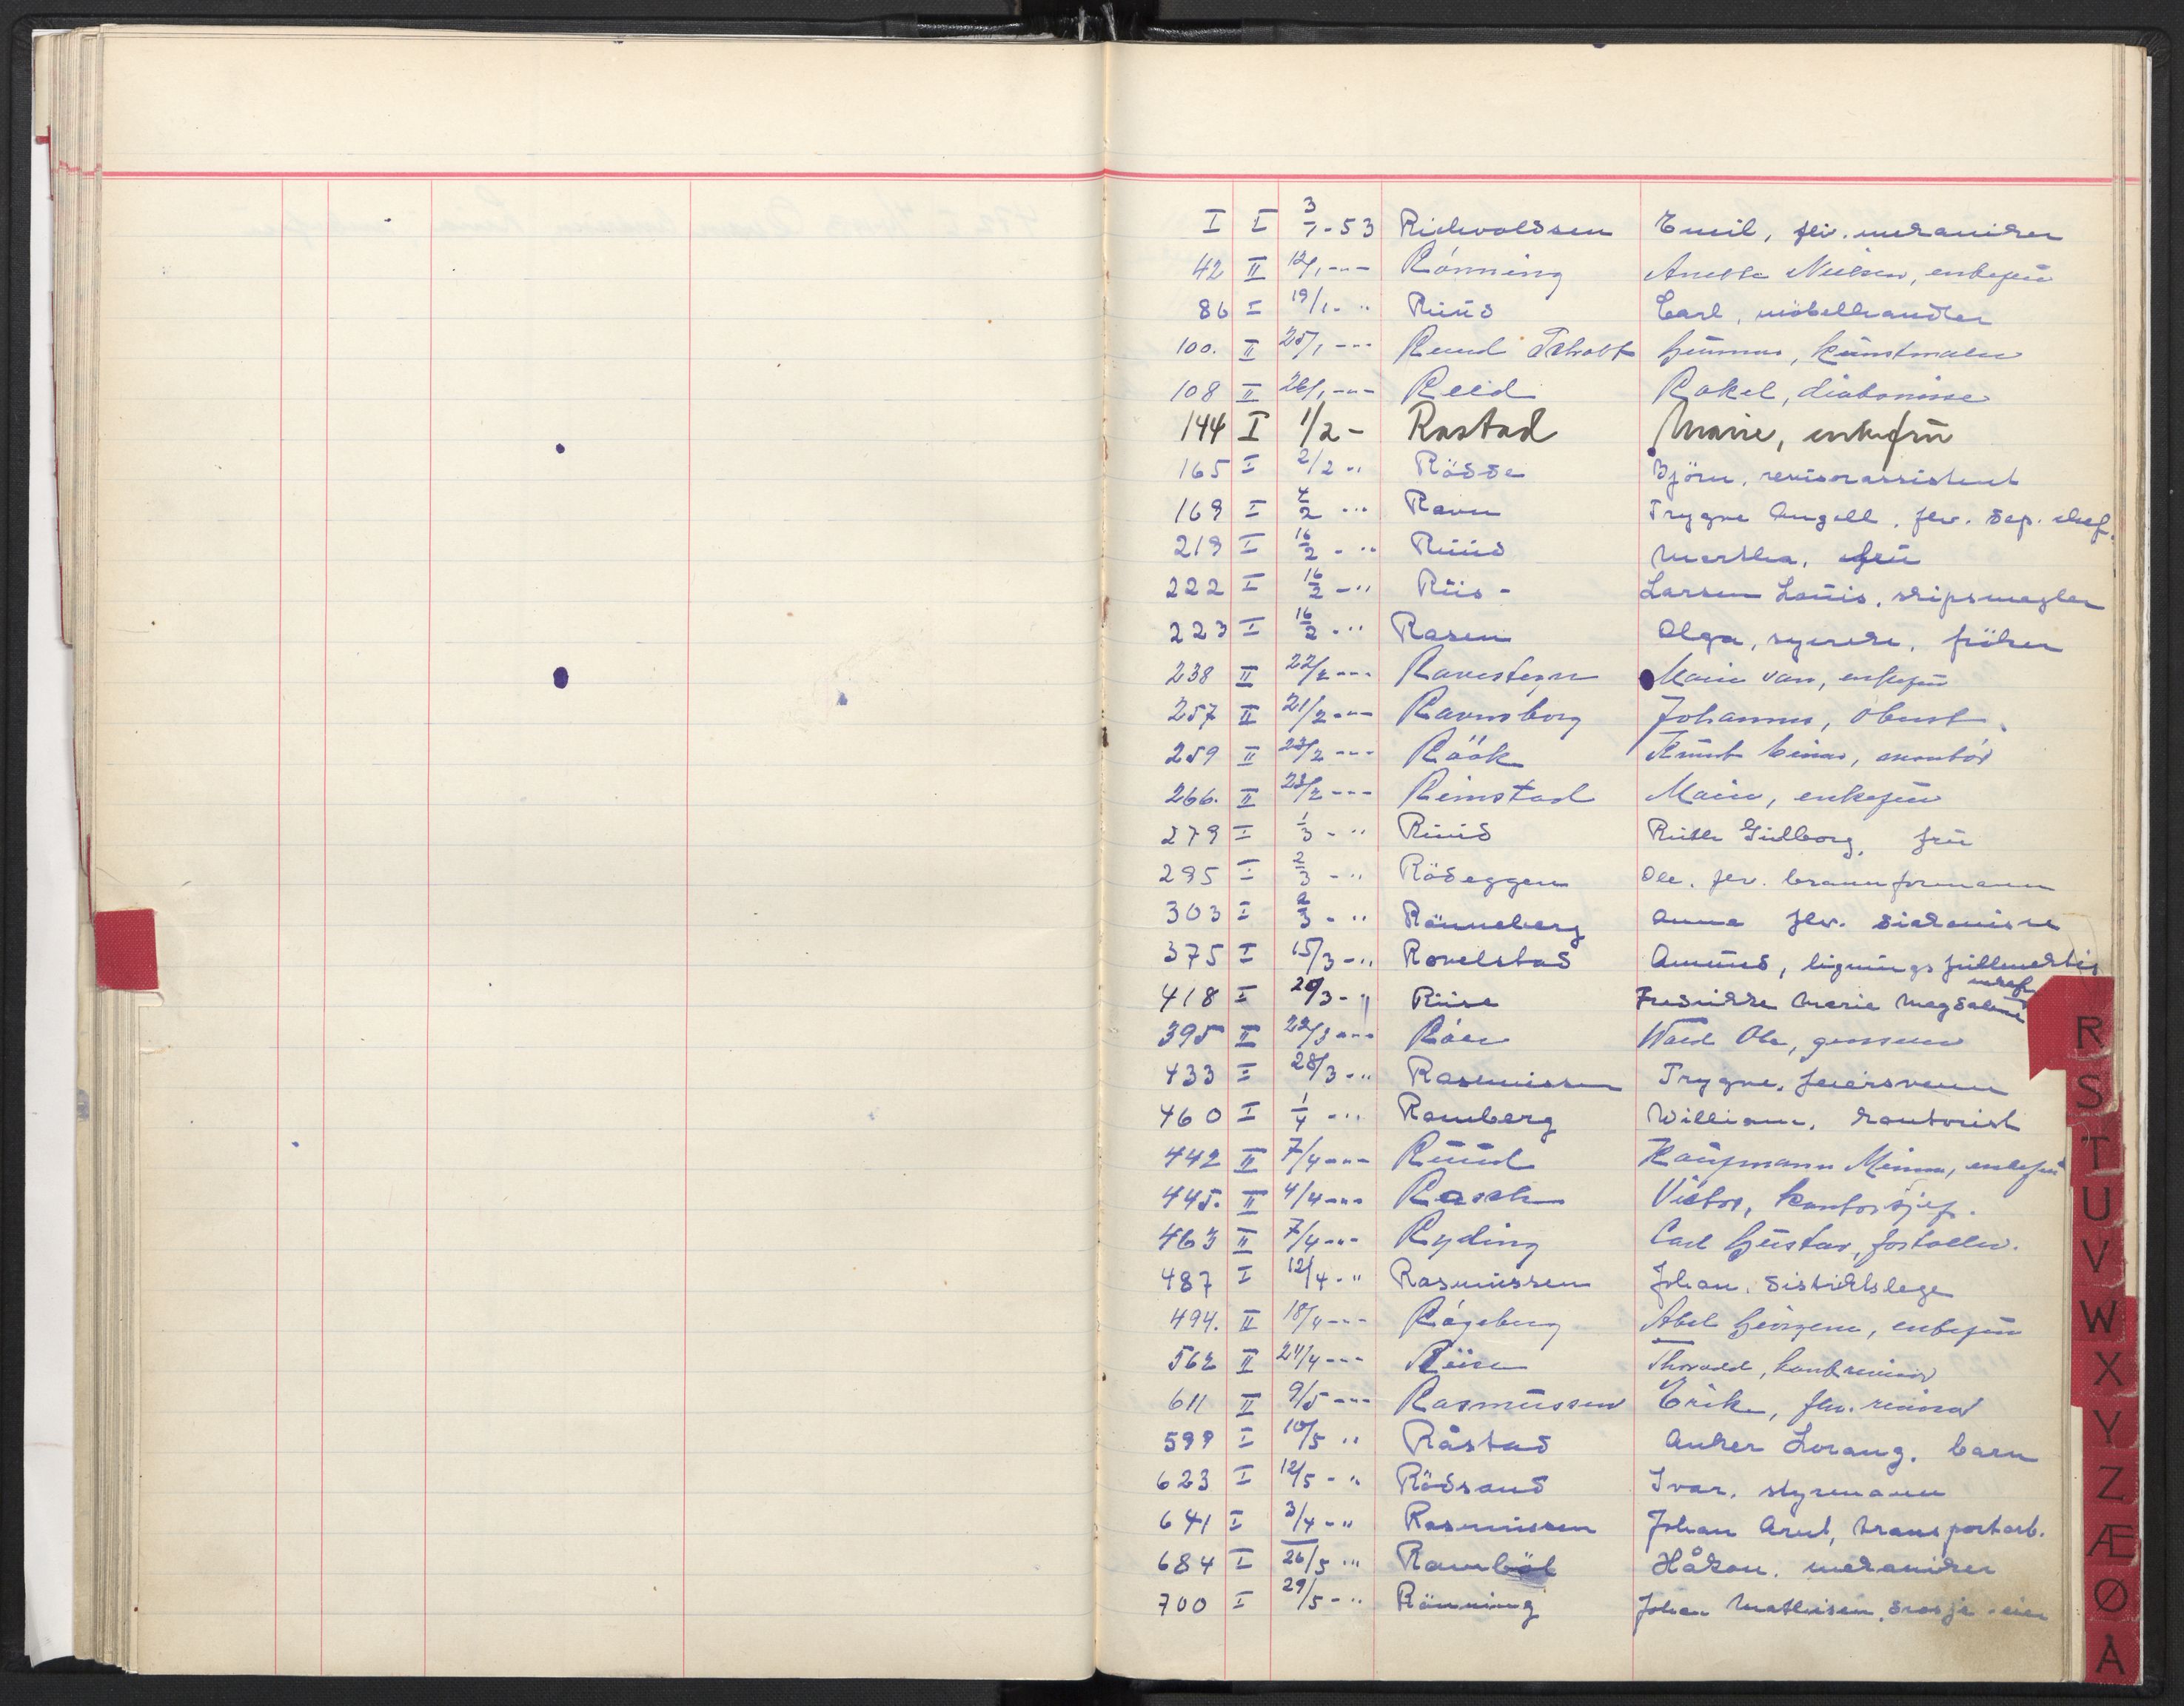 I I 3/1-53 Richvoldsen Emil, flv. mekaniker
42 II 12/1 --- Rönning Anette Nielsen, enkefrü
86 I 19/1 - " Rüüd Carl, möbelhandler
100. II 25/1 --- Ruud Gunnar, kunstmaler
108 II 26/1 --- Reed Rakel, diakonisse
144 I 1/2 - Rastad Marie, enkefrü
165 I 2/2 - " Rödde Björn, revisorassistent
169 I 4/2 - " Ravn Trygve Angell, flv. dep. chef.
219 I 16/2 - " Rüüd Martha, frü
222 I 16/2 - " Riis - Larsen Loüis, skipsmegler
223 I 16/2 - " Rasen Olga, syerske, fröken
238 II 22/2 --- Ravesteyn Marie van, enkefrü
257 II 21/2 --- Ravnsborg Johannes, oberst
259 II 23/2 --- Röök Knut Einar, montör
266. II 23/2 --- Reimstad Marie, enkefrü
279 I 1/3 - " Rüüd Rüth Gidborg, frü
295 I 2/3 - " Rödeggen Ole, flv. brannformann
303 I 2/3 - " Rönneberg Anna flv. diakonisse
375 I 15/3 - " Rovelstad Amünd, lignings füllmektig
418 I 20/3 - " Riise Fredrikke Marie Magdalene enkefr
395 II 22/3 --- Röer Ole, grosserer
433 I 28/3 - " Rasmüssen Trygve, feiersvenn
460 I 1/4 - " Ramberg William, kontorist
442 II 7/4 --- Rüüd Kaüfmann Minna, enkefrü
445. II 4/4 --- Rasch Victor, kontorsjef.
463 II 7/4 --- Ryding Carl Güstav, fortoller.
487 I 12/4 - " Rasmüssen Johan, distriktslege
494. II 18/4 --- Rögeberg Abel Georgene, enkefrü
562 II 24/4 --- Riise Thorvald, hovedrevisor
611 II 9/5 --- Rasmüssen Erik, flv. revisor
599 I 10/5 " Råstad Anker Lorang, barn
623 I 12/5 - " Rödsand Ivar, styrmann
641 I 3/4 - " Rasmüssen Johan Arnt, transportarb.
684 I 26/5 " Ramböl Håkon, mekaniker
700 I 29/5 - " Rönning Johan Mathisen, drosje-eier
R
S
T
U
V
W
X
Y
Z
Æ
Ø
Å